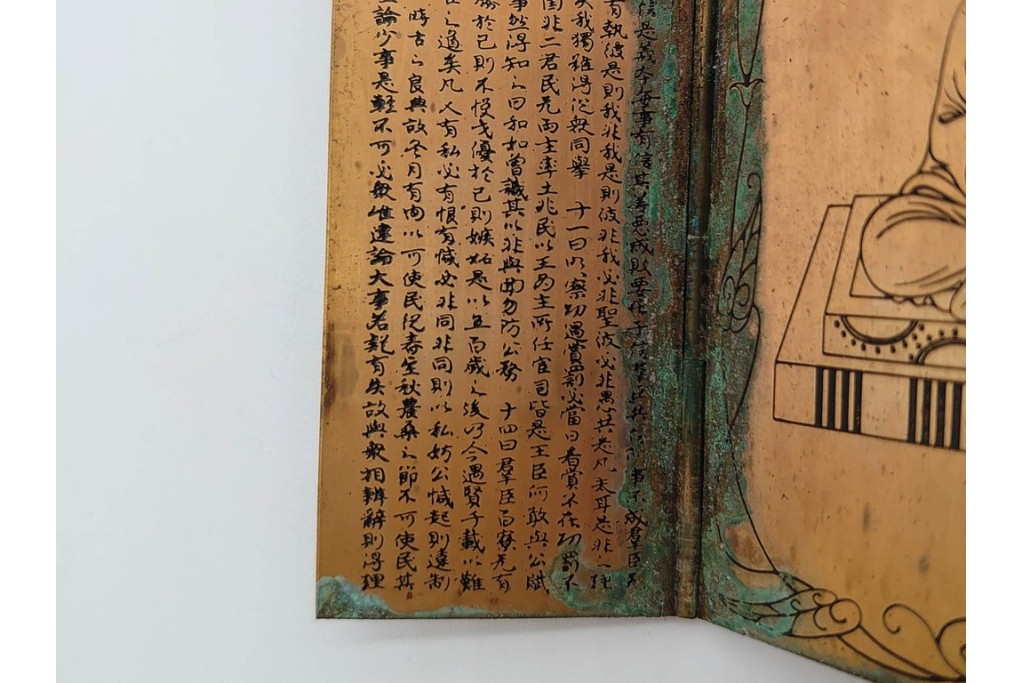 信是義本毎事有信其善悪成敗要在于信羣臣共信何事不成羣臣无
有執彼是則我非我是則彼非我必非聖彼必非愚共是凡夫耳是非之理
失我獨雖得從衆同擧 十一曰明察功過賞罰必當日者賞不在功罰不
國非二君民无兩主率土兆民以王為主所任官司皆是王臣何敢與公賦
事然得知之日和如曾識其以非與聞勿防公務 十四曰羣臣百寮无有
勝於己則不悦才優於己則嫉妬是以五百歳之後乃今遇賢千載以難
臣之道矣凡人有私必有恨有憾必非同非同則以私妨公憾起則違制
時古之良典故冬月有間以可使民從春至秋農桑之節不可使民其
宜論少事是輕不可必衆唯逮論大事若疑有失故與衆相辨辭則得理